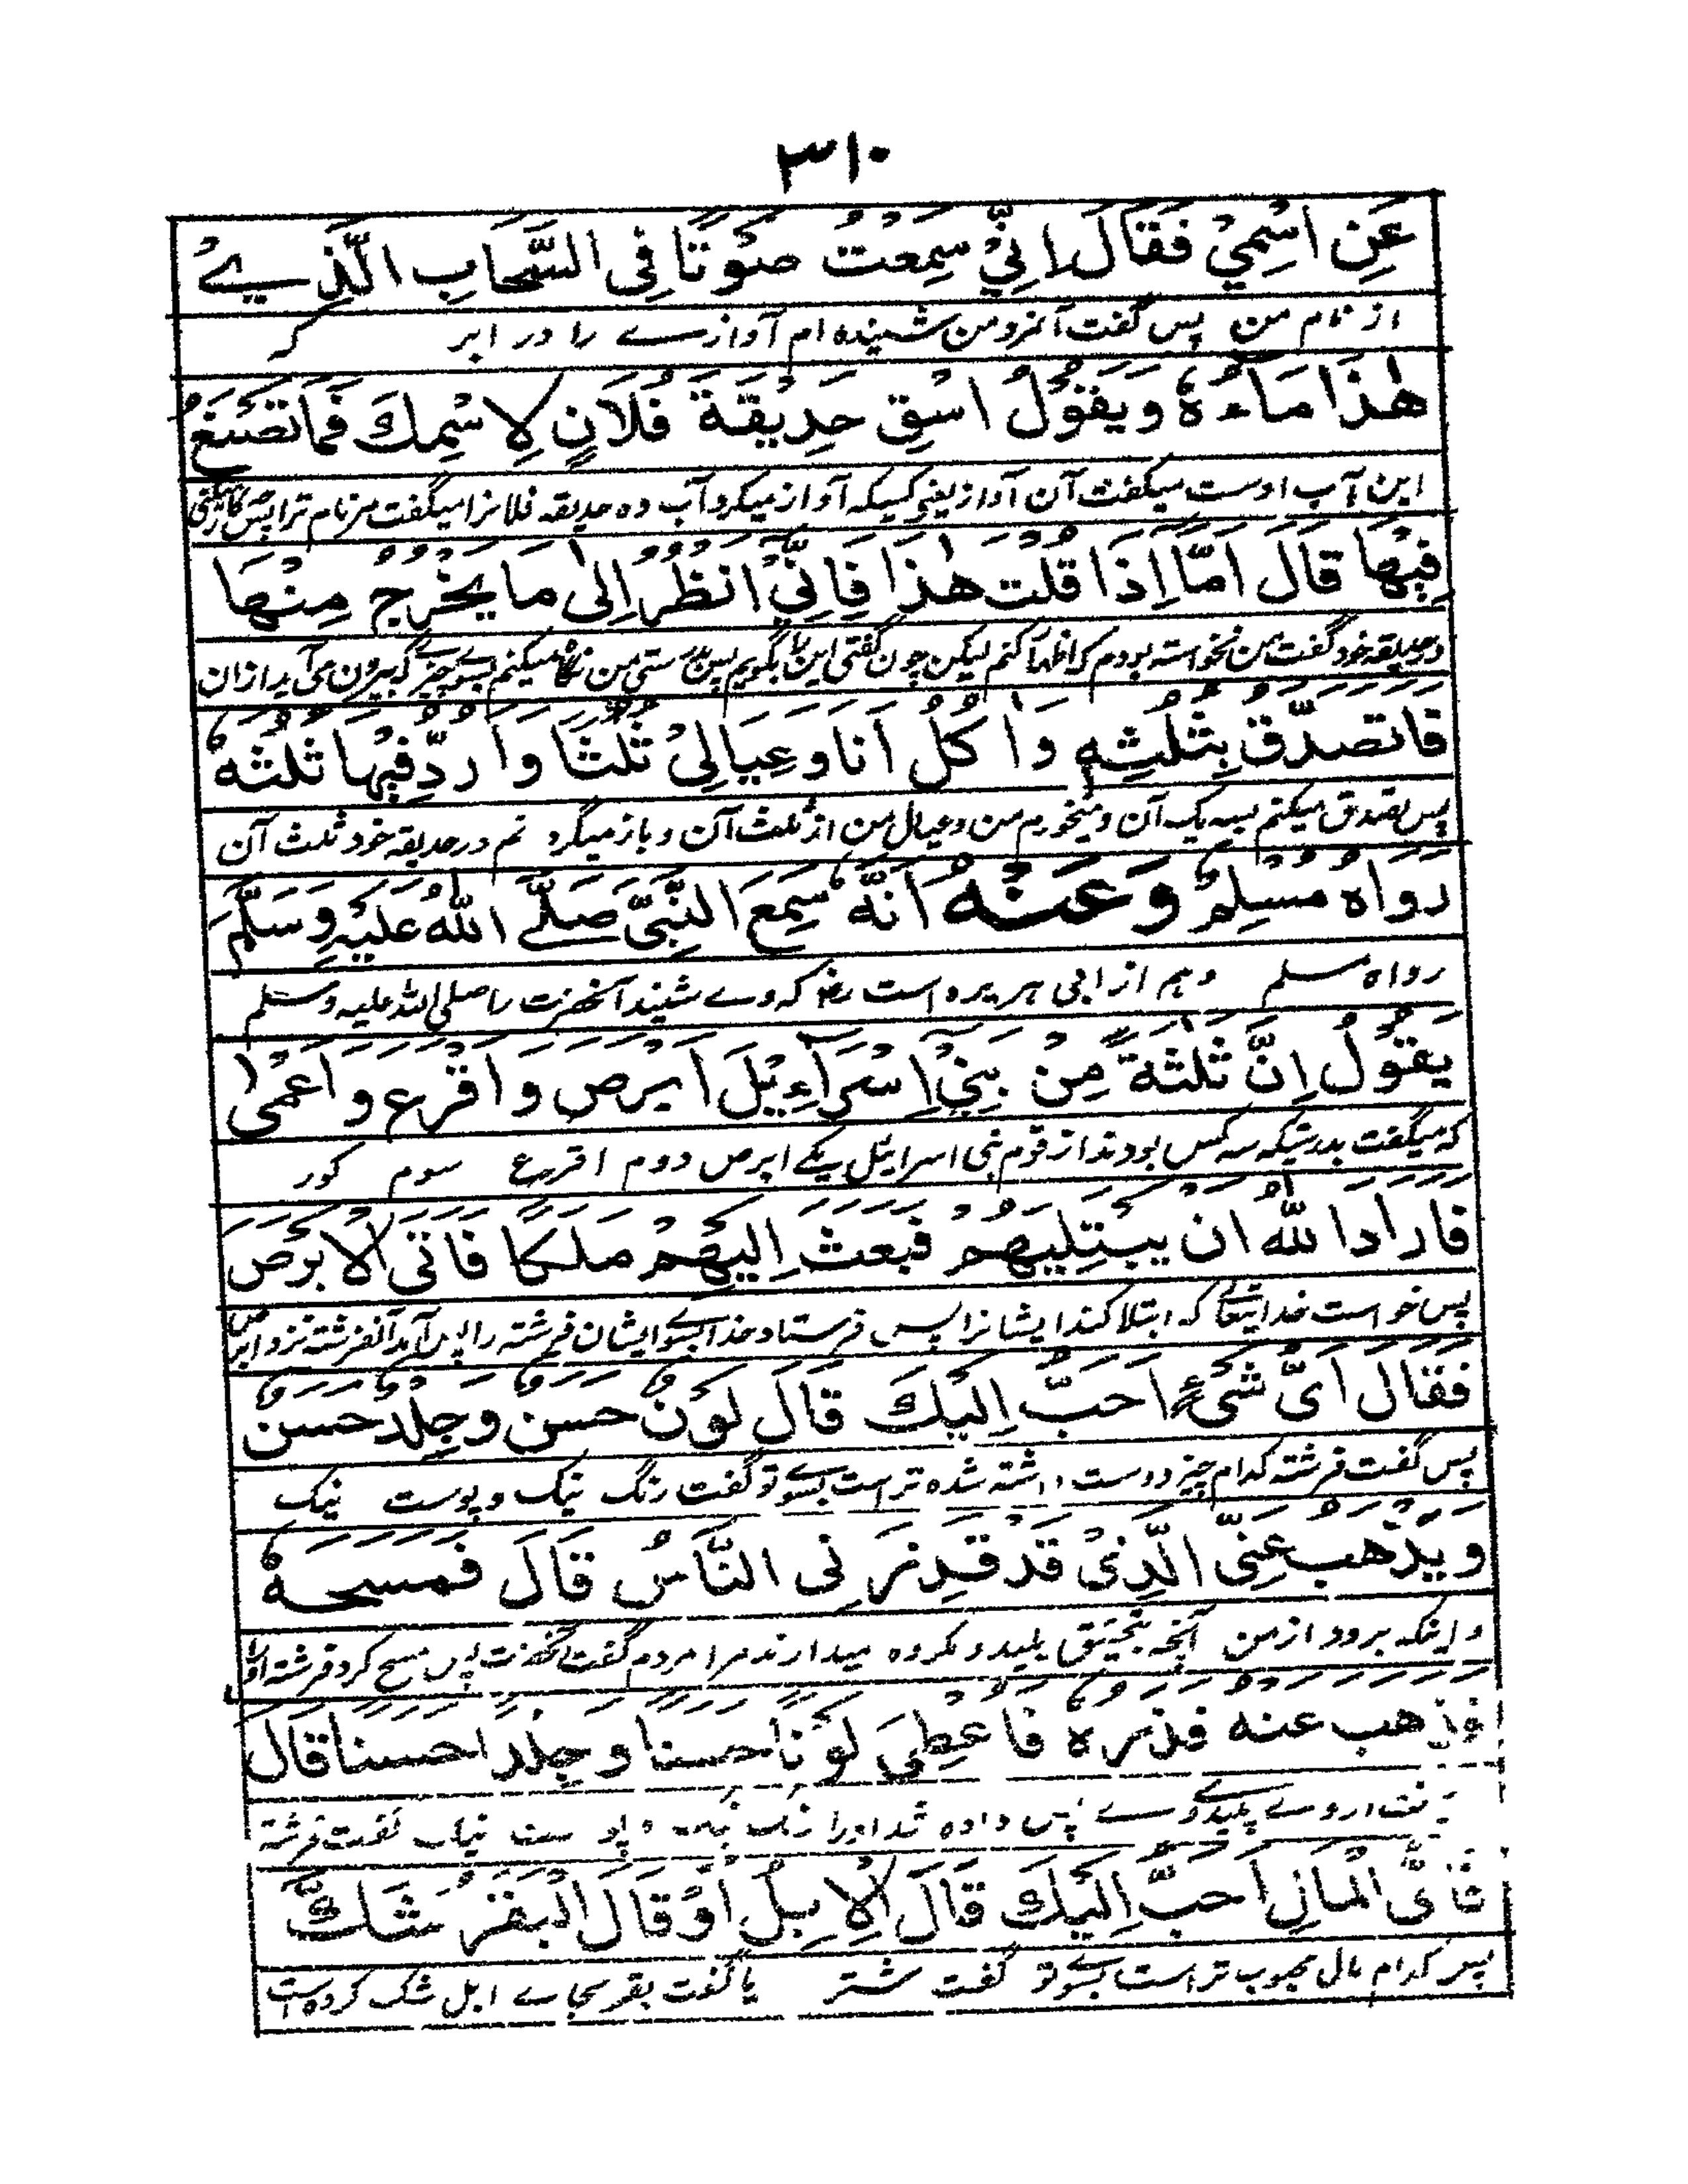 ٣١٠
عَنِ اسْمِيْ فَقَالَ اِنِّيْ سَمِعْتُ صَوْتًا فِي السَّحَابِ الَّذِيْ
از نام من پس گفت آنمرد من شنیده ام آوازے را در ابر که
هٰذَا مَاءُهٗ وَيَقُوْلُ اسْقِ حَدِيْقَةَ فُلَانٍ لِاسْمِكَ فَمَا تَصْنَعُ
این آب اوست میگفت آن آواز یعنی کسیکه آواز میکرد آب ده حدیقه فلانرا میگفت مر نام ترا پس چه کار میکنی
فِيْهَا قَالَ اَمَّا اِذَا قُلْتَ هٰذَا فَاِنِّيْ اَنْظُرُ اِلٰى مَا يَخْرُجُ مِنْهَا
در حدیقه خود گفت من نخواسته بودم که اظهار کنم لیکن چون گفتی این را بگویم پس بدرستی من نگاه میکنم بسوے چیزے که بیرون می آید ازان
فَاَتَصَدَّقُ بِثُلُثِهٖ وَاٰكُلُ اَنَا وَعِيَالِيْ ثُلُثًا وَاَرُدُّ فِيْهَا ثُلُثَهٗ
پس تصدق میکنم بسه یک آن و میخورم من و عیال من از ثلث آن و باز میگرد نم در حدیقه خود ثلث آن
رَوَاهُ مُسْلِمٌ وَعَنْهُ اَنَّهٗ سَمِعَ النَّبِيَّ صَلَّے اللهُ عَلَيْهِ وَسَلَّمَ
رواه مسلم و هم از ابی هریره است رض که وے شنید آنحضرت را صلی الله علیه وسلم
يَقُوْلُ اِنَّ ثَلٰثَةً مِنْ بَنِيْ اِسْرَاءِيْلَ اَبْرَصَ وَاَقْرَعَ وَاَعْمٰى
که میگفت بدرستیکه سه کس بودند از قوم بنی اسرائیل یکے ابرص دوم اقرع سوم کور
فَاَرَادَ اللهُ اَنْ يَبْتَلِيَهُمْ فَبَعَثَ اِلَيْهِمْ مَلَكًا فَاَتَى الْاَبْرَصَ
پس خواست خدایتعالے که ابتلا کند ایشانرا پس فرستاد خدا بسوے ایشان فرشته را پس آمد آنفرشته نزد ابرص
فَقَالَ اَىُّ شَىْءٍ اَحَبُّ اِلَيْكَ قَالَ لَوْنٌ حَسَنٌ وَجِلْدٌ حَسَنٌ
پس گفت فرشته کدام چیز دوست داشته شده تر است بسوے تو گفت رنگ نیک و پوست نیک
وَيَذْهَبُ عَنِّى الَّذِىْ قَدْ قَذِرَنِى النَّاسُ قَالَ فَمَسَحَهٗ
و اینکه برود از من آنچه بتحقیق پلید و مکروه میدارند مرا مردم گفت آنحضرت پس مسح کرد فرشته اورا
فَذَهَبَ عَنْهُ قَذَرُهٗ فَاُعْطِىَ لَوْنًا حَسَنًا وَجِلْدًا حَسَنًا قَالَ
از وے پلیدگی وے پس داده شد اورا رنگ نیک و پوست نیک گفت فرشته
فَاَىُّ الْمَالِ اَحَبُّ اِلَيْكَ قَالَ الْاِبِلُ اَوْ قَالَ الْبَقَرُ شَكَّ
پس کدام مال محبوب تر است بسوے تو گفت شتر یا گفت بقر بجاے ابل شک کرده است